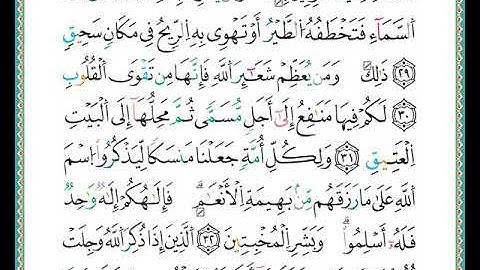 السَّمَآءِ فَتَخْطَفُهُ الطَّيْرُ أَوْ تَهْوِى بِهِ الرِّيحُ فِى مَكَانٍ سَحِيقٍ
﴿٢٩﴾ ذَٰلِكَ وَمَن يُعَظِّمْ شَعَـٰٓئِرَ اللَّهِ فَإِنَّهَا مِن تَقْوَى الْقُلُوبِ
﴿٣٠﴾ لَكُمْ فِيهَا مَنَـٰفِعُ إِلَىٰٓ أَجَلٍ مُّسَمًّى ثُمَّ مَحِلُّهَآ إِلَى الْبَيْتِ
الْعَتِيقِ ﴿٣١﴾ وَلِكُلِّ أُمَّةٍ جَعَلْنَا مَنسَكًا لِّيَذْكُرُوا۟ اسْمَ
اللَّهِ عَلَىٰ مَا رَزَقَهُم مِّنۢ بَهِيمَةِ الْأَنْعَـٰمِ فَإِلَـٰهُكُمْ إِلَـٰهٌ وَٰحِدٌ
فَلَهُۥٓ أَسْلِمُوا۟ وَبَشِّرِ الْمُخْبِتِينَ ﴿٣٢﴾ الَّذِينَ إِذَا ذُكِرَ اللَّهُ وَجِلَتْ